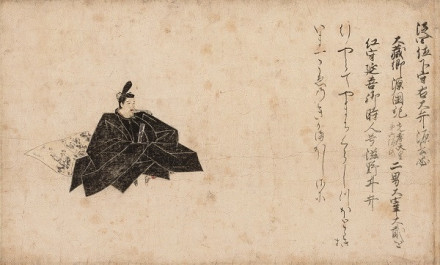 従四位下守右大弁源公忠
大蔵卿源国紀 二男大宰大貳
延喜御時人号滋野井弁
行やらてやまちくらしつほとゝきす
いま一こゑのきかまほしさに